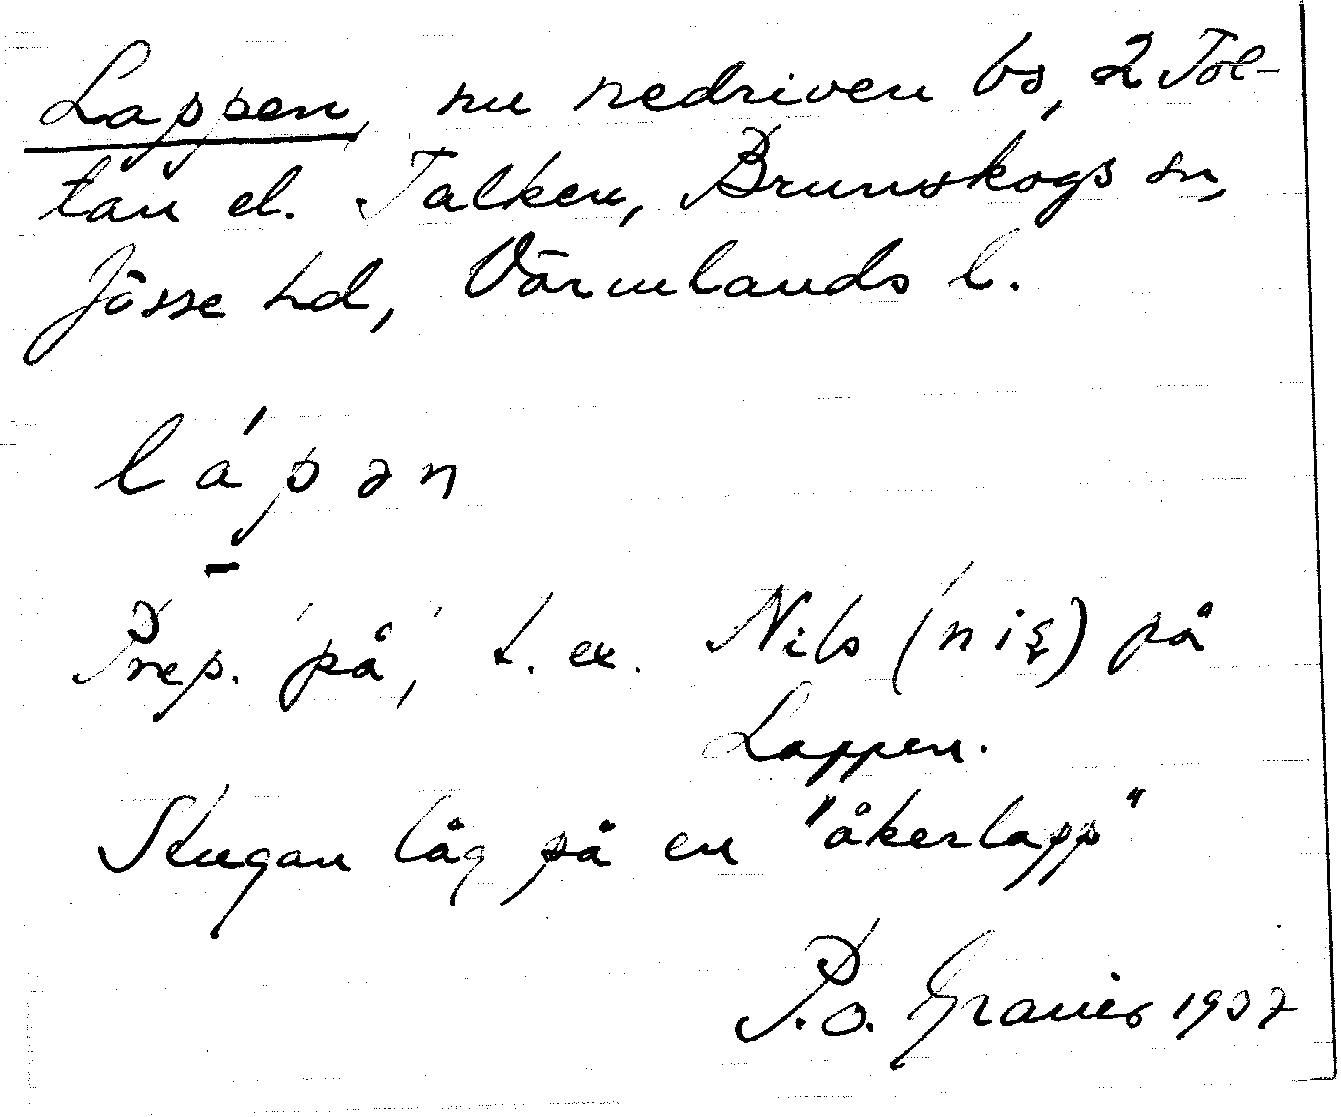 Lappen, nu nedriven bs, 2 Tol-
tan el. Talken, Brunskogs sn,
Jösse hd, Värmlands l.
lápən
Prep. 'på', t. ex. Nils (nis̨) på
Lappen.
Stugan låg på en "åkerlapp"
P.o. 1937